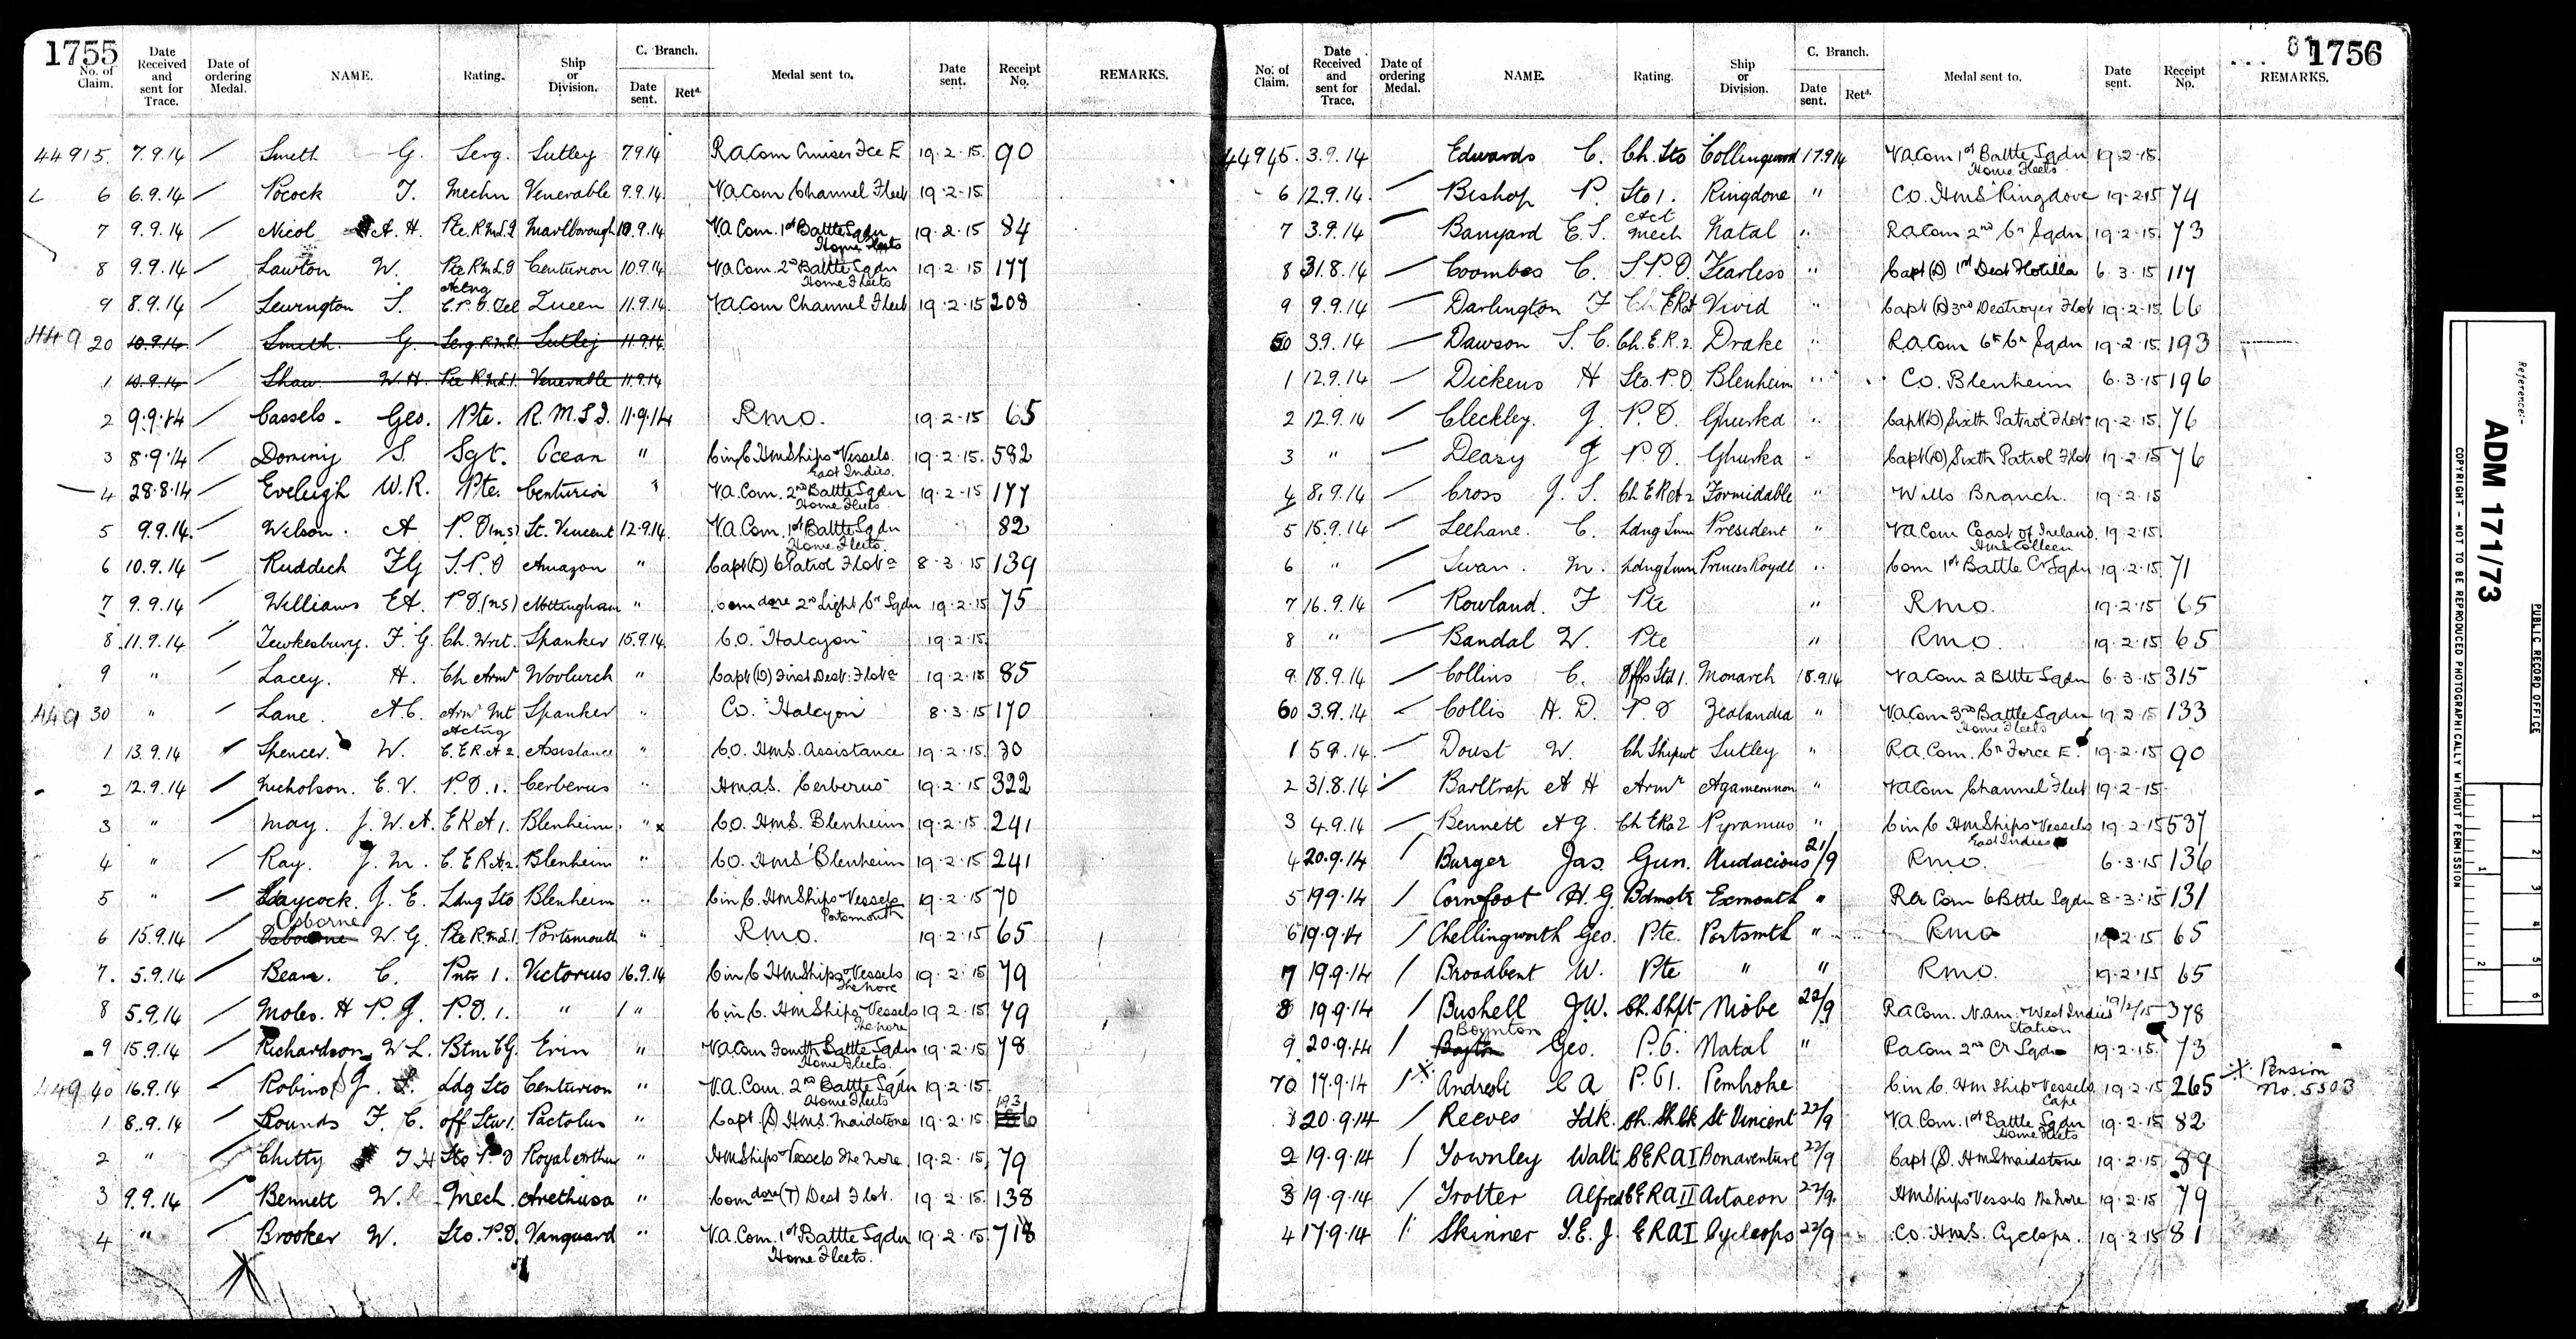 1755
No. of Claim. Date Received and sent for Trace. Date of ordering Medal. NAME. Rating. Ship or Division. C. Branch. Date sent. Retd. Medal sent to. Date sent. Receipt No. REMARKS.
44915. 7.9.14 / Smith G. Serg. Sutley 7.9.14 RaCom Cruiser Fce E 19.2.15. 90
6 6.9.14 / Pocock T. Mechn Venerable 9.9.14. VaCom Channel Fleet 19.2.15
7 9.9.14 / Nicol A. H. Pte. R.M.L.I Marlborough 10.9.14 Va Com. 1st Battle Sqdn 19.2.15 84
Home Fleets
8 9.9.14 / Lawton W. Pte R.M.L.I Centurion 10.9.14 Va Com. 2nd Battle Sqdn 19.2.15 177
Home Fleets
Acting
9 8.9.14 / Lewington S. C.P.O. Tel Queen 11.9.14 VaCom Channel Fleet 19.2.15 208
449 20 10.9.14 / Smith. G. Serg R.M.L.I Sutley 11.9.14
1 10.9.14 / Shaw. W.H. Pte R.M.L.I. Venerable 11.9.14
2 9.9.14 / Cassels. Geo. Pte. R.M.L.I. 11.9.14 RMO. 19.2.15 65
3 8.9.14 / Dominy S. Sgt. Ocean " C in C HMShips & Vessels 19.2.15. 582
East Indies.
4 28.8.14 / Eveleigh W.R. Pte. Centurion " Va.Com. 2nd Battle Sqdn 19.2.15 177
Home Fleets.
5 9.9.14. / Wilson. A P.O (ns) St. Vincent 12.9.14. Va.Com. 1st Battle Sqdn 82
Home Fleets.
6 10.9.14 / Ruddich FG S.P.O Amazon " Capt (D) 6 Patrol Flota 8.3.15 139
7 9.9.14 / Williams EA. P.O. (ns) Nottingham " Comdore 2nd Light Cr Sqdn 19.2.15 75
8 11.9.14 / Tewkesbury. F. G. Ch. Writ. Spanker 15.9.14. CO. "Halcyon" 19.2.15.
9 " / Lacey. H. Ch Armr Woolwich " Capt (D) First Dest. Flota 19.2.15 85
449 30 " / Lane. A.C. Armr Mt Spanker " Co. "Halcyon" 8.3.15 170
Acting
1 13.9.14 / Spencer. W. C.E.R.A 2 Assistance " CO. HMS. Assistance 19.2.15 30
2 12.9.14 / Nicholson. E. V. P.O. 1. Cerberus " HMAS. Cerberus 19.2.15 322
3 " / May. J. W. A. E R A 1. Blenheim. " x CO. HMS. Blenheim 19.2.15 241
4 " / Ray. J. M. C.E.R.A.2. Blenheim " CO. HMS Blenheim 19.2.15 241
5 " / Laycock. J. E. Ldng Sto Blenheim " C in C. HMShips & Vessels 19.2.15 70
Portsmouth
Osborne
6 15.9.14 / Osbourne W. G. Pte R.M.L.I. Portsmouth " RMO. 19.2.15 65
7. 5.9.14 / Bean. C. Pntr 1. Victorious 16.9.14. C in C HMShips & Vessels 19.2.15 79
The Nore
8 5.9.14 / Moles. H P. J. P.O. 1. " " C in C. HMShips & Vessels 19.2.15 79
The Nore
9 15.9.14 / Richardson W L. Btm C G. Erin " VaCom Fourth Battle Sqdn 19.2.15. 78
Home Fleets.
449 40 16.9.14 / Robins J. Ldg Sto Centurion " V.A. Com. 2nd Battle Sqdn 19.2.15.
Home Fleets
193
1 8.9.14 / Rounds F. C. off Stw 1. Pactolus " Capt. (S) HMS. Maidstone 19.2.15.
2 " / Chitty T H Sto P O Royal Arthur " HMShips & Vessels The Nore 19.2.15. 79
3 9.9.14 / Bennett W. Mech Arethusa " Comdore (T) Dest Flot. 19.2.15. 138
4 " / Brooker W. Sto. P.O. Vanguard " V.a. Com. 1st Battle Sqdn 19.2.15 718
Home Fleets.
1756
No. of Claim. Date Received and sent for Trace. Date of ordering Medal. NAME. Rating. Ship or Division. C. Branch. Date sent. Retd. Medal sent to. Date sent. Receipt No. REMARKS.
44945. 3.9.14 Edwards C. Ch. Sto Collingwood 17.9.14 VaCom 1st Battle Sqdn 19.2.15.
Home Fleets.
6 12.9.14. / Bishop P. Sto 1. Ringdove " CO. HMS Ringdove 19.2.15 74
Act
7 3.9.14 / Banyard E. S. Mech Natal " RaCom 2nd Cr Sqdn 19.2.15. 73
8 31.8.14 / Coombes C. S.P.O. Fearless " Capt (D) 1st Dest Flotilla 6.3.15 117
9 9.9.14 / Darlington F Ch ERA Vivid " Capt (D) 3rd Destroyer Flot 19.2.15. 66
50 3.9.14 / Dawson S. C. Ch. E.R.2. Drake " RaCom 6th Cr Sqdn 19.2.15. 193
1 12.9.14 / Dickens H Sto. P.O. Blenheim " Co. Blenheim 6.3.15 196
2 12.9.14 / Cleckley. J. P.O. Ghurka " Capt (D) Sixth Patrol Flot 19.2.15. 76
3 " / Deasy J P.O. Ghurka " Capt (D) Sixth Patrol Flot 19.2.15 76
4 8.9.14 / Cross J. S. Ch ERA 2 Formidable " Wills Branch. 19.2.15
5 15.9.14 / Leehane. C. Ldng Smn President " VaCom Coast of Ireland. 19.2.15.
HMS Colleen
6 " / Swan. M. Ldng Smn Princes Royal " Com 1st Battle Cr Sqdn 19.2.15. 71
7 16.9.14 / Rowland. F Pte " RMO. 19.2.15 65
8 " / Bandal W. Pte " RMO. 19.2.15 65
9. 18.9.14 / Collins C. Offs Std 1. Monarch 18.9.14 VaCom 2 Bttle Sqdn 6.3.15 315
60 3.9.14 / Collis H. D. P.O Zealandia " VaCom 3rd Battle Sqdn 19.2.15 133
Home Fleets
1 5.9.14 / Doust W. Ch Shipwt Sutley " Ra.Com. Cr Force E. 19.2.15 90
2 31.8.14 / Barltrap A H Armr Agamemnon " VaCom Channel Fleet 19.2.15
3 4.9.14 / Bennett A G. Ch ERa 2 Pyramus " C in C HMShips & Vessels 19.2.15 537
East Indies
4 20.9.14 / Burger Jas. Gun. Audacious 21/9 RMO. 6.3.15 136
5 19.9.14 / Cornfoot H. G. Bdmstr Exmouth " Ra Com 6 Bttle Sqdn 8.3.15 131
6 19.9.14 / Chellingworth Geo. Pte. Portsmth " RMO 19.2.15 65
7 19.9.14 / Broadbent W. Pte " " RMO. 19.2.15 65
8 19.9.14 / Bushell J.W. Ch. Shpt Niobe 22/9 RaCom. N.Am. & West Indies 19/2/15 378
Station
Boynton
9 20.9.14 / Boyton Geo. P.O. Natal " RaCom 2nd Cr Sqdn 19.2.15. 73
70 17.9.14 / X Andreoli C A P.O 1. Pembroke C in C. HM Ships & Vessels 19.2.15 265 X Pension
Cape No. 5503
1 20.9.14 / Reeves Fdk. Ch. Sh Ck St Vincent 22/9 Va.Com. 1st Battle Sqdn 19.2.15 82
Home Fleets
2 19.9.14 / Townley Walt. C E R A I Bonaventure 22/9 Capt (S). HMS Maidstone 19.2.15 89
3 19.9.14 / Trotter Alfred C E R A II Actaeon 22/9. HMShips & Vessels The Nore 19.2.15 79
4 17.9.14 / Skinner T. E. J. E R A I Cycleops 22/9 Co. HMS. Cyclops. 19.2.15 81
Reference:-
ADM 171/73
PUBLIC RECORD OFFICE
COPYRIGHT - NOT TO BE REPRODUCED PHOTOGRAPHICALLY WITHOUT PERMISSION
1 2 3 4 5 6
1 2